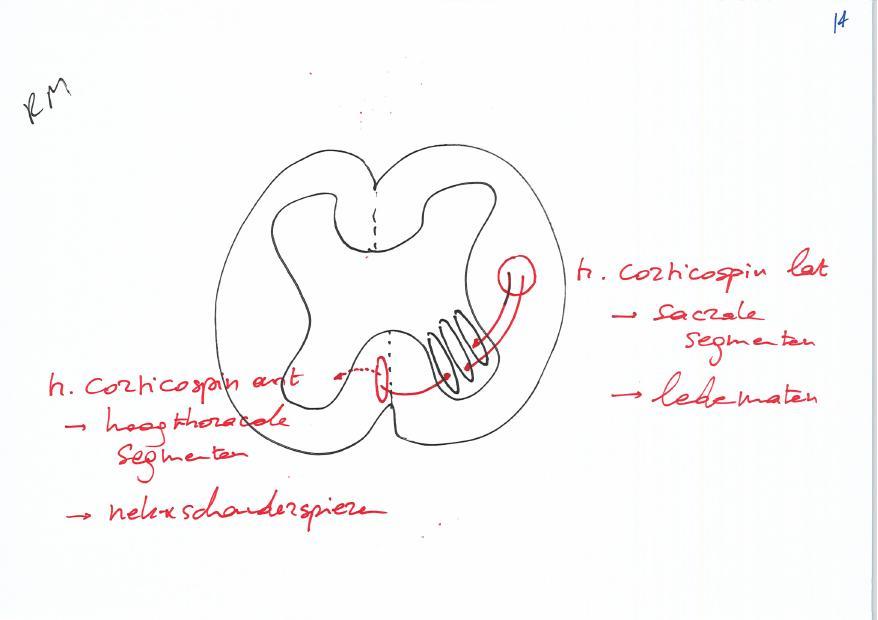 14
RM
tr. corticospin lat
→ sacrale
segmenten
→ ledematen
tr. corticospin ant
→ hoogthoracale
segmenten
→ nek & schouderspieren